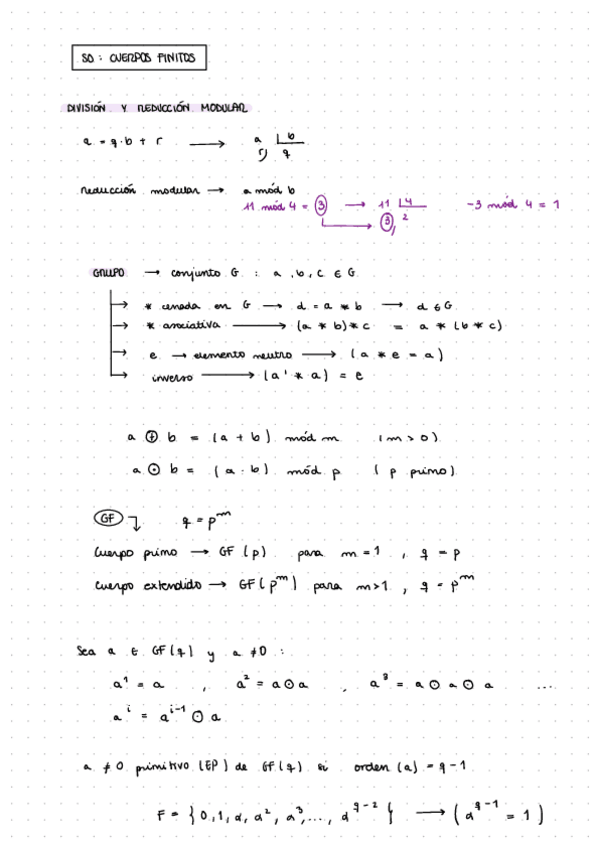 SD: CUERPOS FINITOS
DIVISIÓN Y REDUCCIÓN MODULAR
a = q·b + r ⟶ a | b
r) q
reducción modular → a mód b
11 mód 4 = 3 → 11 | 4 -3 mód 4 = 1
3, 2
GRUPO → conjunto G : a, b, c ∈ G
→ * cerrada en G → d = a * b → d ∈ G
→ * asociativa ⟶ (a * b) * c = a * (b * c)
→ e → elemento neutro ⟶ (a * e = a)
→ inverso ⟶ (a' * a) = e
a ⊕ b = (a + b) mód m (m > 0)
a ⊙ b = (a · b) mód p (p primo)
GF q = p^m
Cuerpo primo → GF (p) para m = 1 , q = p
Cuerpo extendido → GF(p^m) para m>1 , q = p^m
Sea a ∈ GF(q) y a ≠ 0 :
a^1 = a , a^2 = a ⊙ a , a^3 = a ⊙ a ⊙ a ...
a^i = a^{i-1} ⊙ a
a ≠ 0 primitivo (EP) de GF(q) si orden (a) = q-1
F = { 0, 1, α, α^2, α^3, ..., α^{q-2} } ⟶ (α^{q-1} = 1)